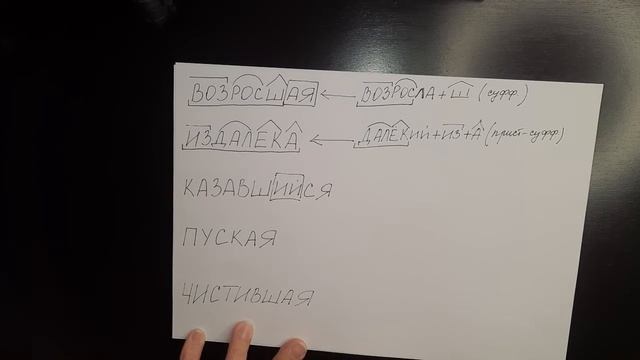 ВОЗРОСШАЯ ← ВОЗРОСЛА + Ш (суфф)
ИЗДАЛЕКА ← ДАЛЁКИЙ + ИЗ + А (прист-суфф)
КАЗАВШИЙСЯ
ПУСКАЯ
ЧИСТИВШАЯ